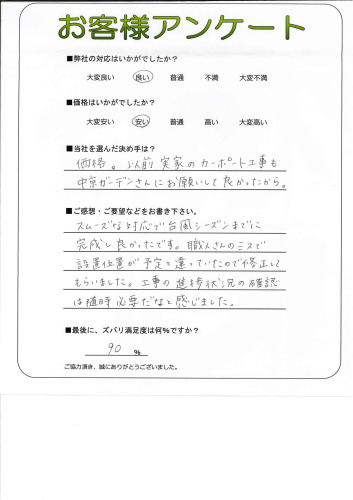 お客様アンケート
■弊社の対応はいかがでしたか?
大変良い 良い 普通 不満 大変不満
■価格はいかがでしたか?
大変安い 安い 普通 高い 大変高い
■当社を選んだ決め手は?
価格。以前実家のカーポート工事も
中京ガーデンさんにお願いして良かったから。
■ご感想・ご要望などをお書き下さい。
スムーズな対応で台風シーズンまでに
完成し良かったです。職人さんのミスで
設置位置が予定と違っていたので修正して
もらいました。工事の進捗状況の確認
は随時必要だなと感じました。
■最後に、ズバリ満足度は何%ですか?
90 %
ご協力頂き、誠にありがとうございました。